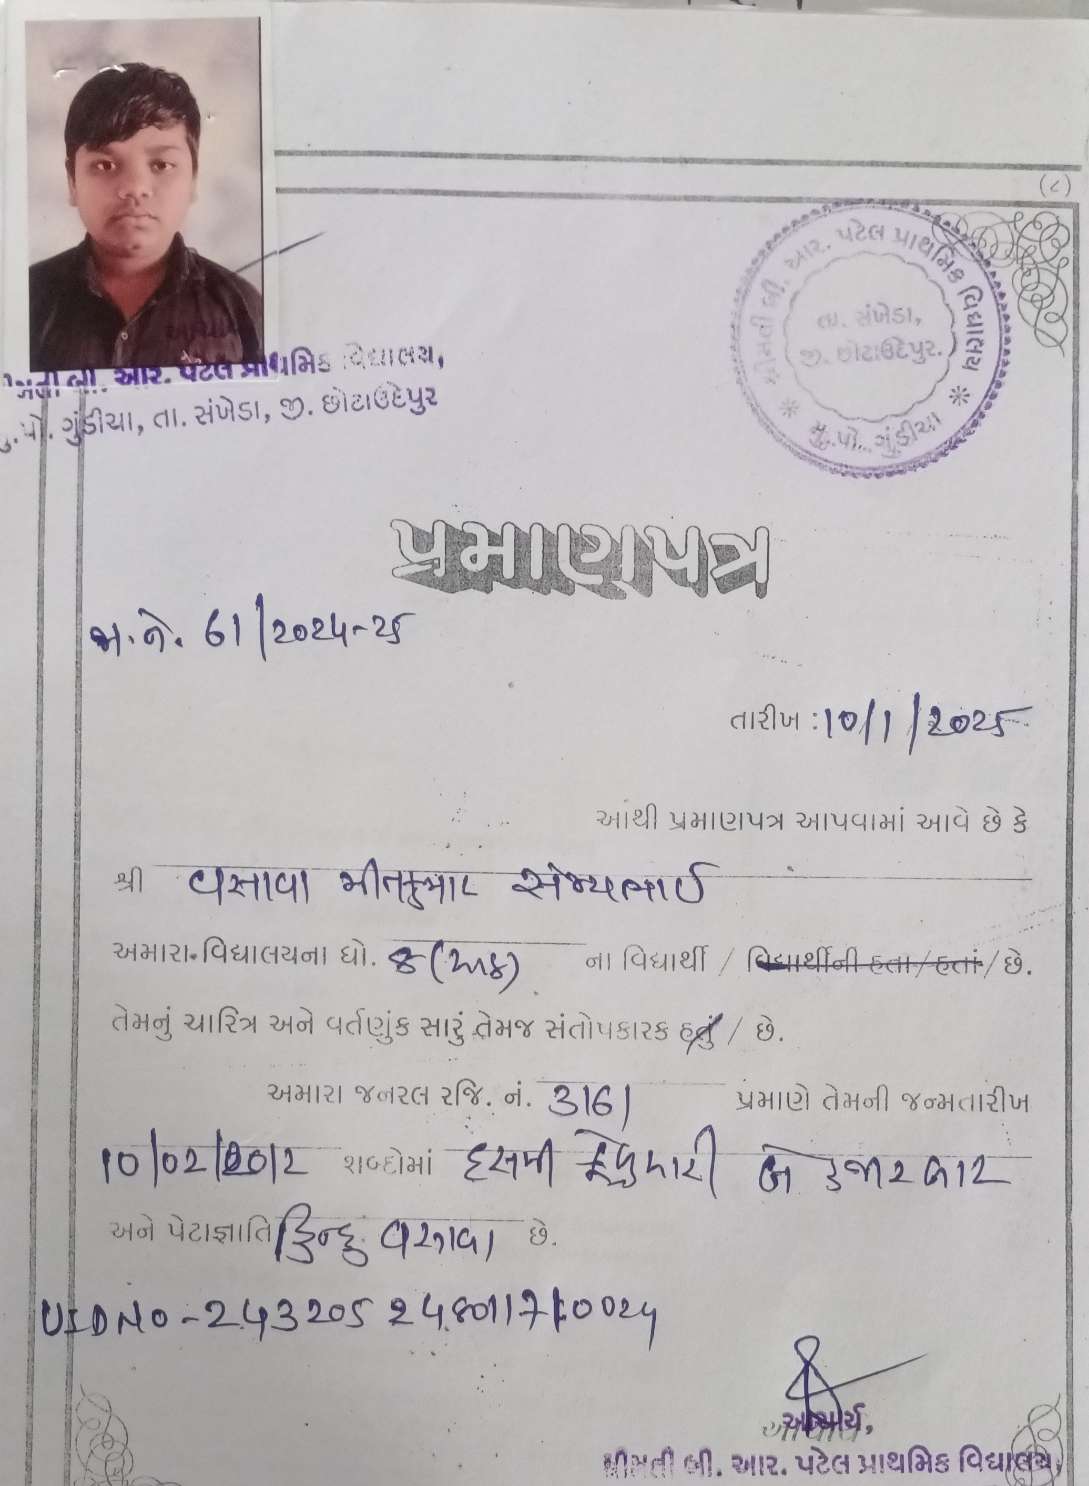 (૮)
શ્રીમતી બી. આર. પટેલ પ્રાથમિક વિદ્યાલય
તા. સંખેડા,
જી. છોટાઉદેપુર.
મુ.પો. ગુંડીચા
બી. આર. પટેલ પ્રાથમિક વિદ્યાલય,
મુ.પો. ગુંડીચા, તા. સંખેડા, જી. છોટાઉદેપુર
પ્રમાણપત્ર
જા.નં. 61/2024-25
તારીખ : 10/1/2025
આથી પ્રમાણપત્ર આપવામાં આવે છે કે
શ્રી વસાવા મીતકુમાર સંજયભાઈ
અમારા વિદ્યાલયના ધો. 8 (આઠ) ના વિદ્યાર્થી / વિદ્યાર્થીની હતા / હતાં / છે.
તેમનું ચારિત્ર અને વર્તણુંક સારું તેમજ સંતોષકારક હતું / છે.
અમારા જનરલ રજિ. નં. 3161 પ્રમાણે તેમની જન્મતારીખ
10/02/2012 શબ્દોમાં દસમી ફેબ્રુઆરી બે હજાર બાર
અને પેટાજ્ઞાતિ હિન્દુ વસાવા છે.
UID NO - 243205
આચાર્ય,
શ્રીમતી બી. આર. પટેલ પ્રાથમિક વિદ્યાલય,